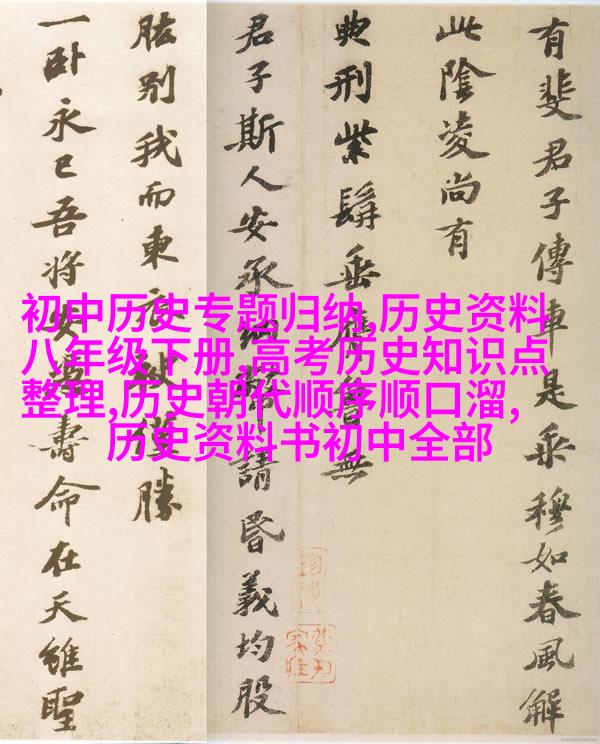 初中历史专题归纳,历史资料
八年级下册,高考历史知识点
整理,历史朝代顺序顺口溜,
历史资料书初中全部
有斐君子傳車是乘穆如春風解
此陰凌尚有
典刑紫髯垂膺魯無
君子斯人安承納幣請昏義均股
肱別我而東衣袂僅勝
一卧永已吾將安馮壽命在天雖聖